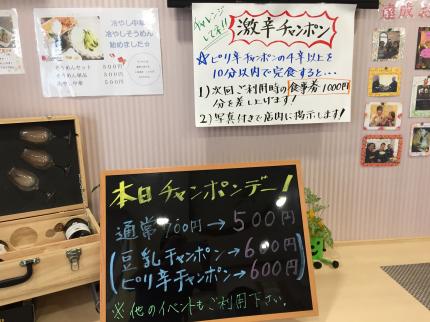 冷やし中華
冷やしそうめん
始めました☆
そうめんセット 800円
そうめん単品 500円
冷やし中華 800円
チャレンジ
して下さい!!
激辛チャンポン
☆ピリ辛チャンポンの4辛以上を
10分以内で完食すると…
1)次回ご利用時の食事券1000円
分を差し上げます!
2)写真付きで店内に掲示します!
達成者
本日チャンポンデー!
通常700円→500円
(豆乳チャンポン→600円
ピリ辛チャンポン→600円)
※他のイベントもご利用下さい。